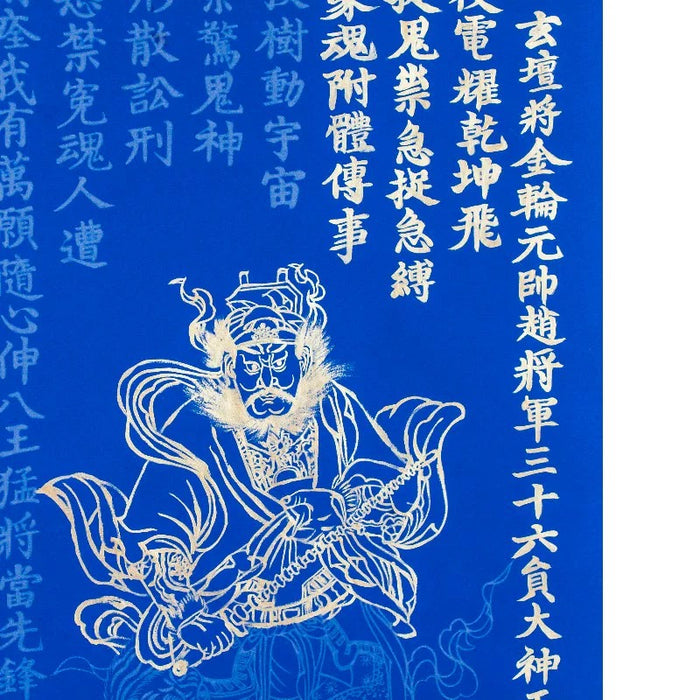 玄壇將金輪元帥趙將軍三十六員大神
電耀乾坤飛
鬼祟急捉急縛
魂附體傳事
樹動宇宙
驚鬼神
散訟刑
禁冤魂人遭
我有萬願隨心伸八王猛將當先鋒